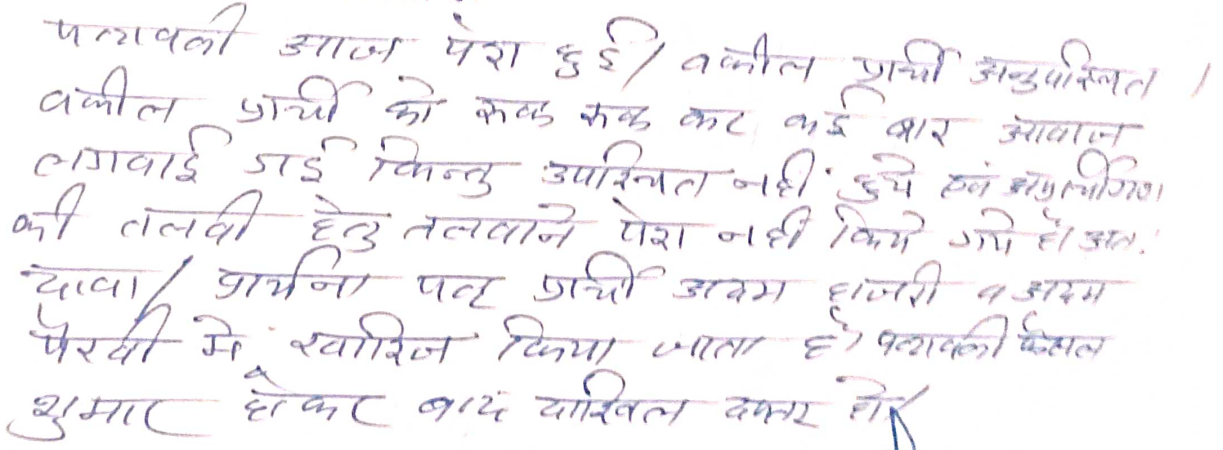 पत्रावली आज पेश हुई/ वकील प्रार्थी अनुपस्थित।
वकील प्रार्थी को रूक रूक कर कई बार आवाज
लगवाई गई किन्तु उपस्थित नही हुये एवं अप्रार्थीगण
की तलवी हेतु तलवाने पेश नही किये गये है। अतः
दावा/ प्रार्थना पत्र प्रार्थी अदम हाजरी व अदम
पैरवी में खारिज किया जाता है। पत्रावली फैसल
शुमार होकर बाद दाखिल दफ्तर हो।